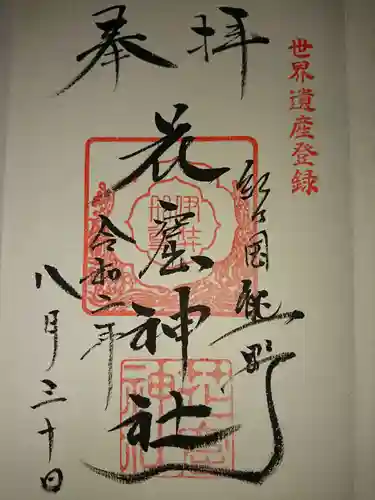 世界遺産登録
奉拝
紀の国熊野
花窟神社
令和二年
八月三十日